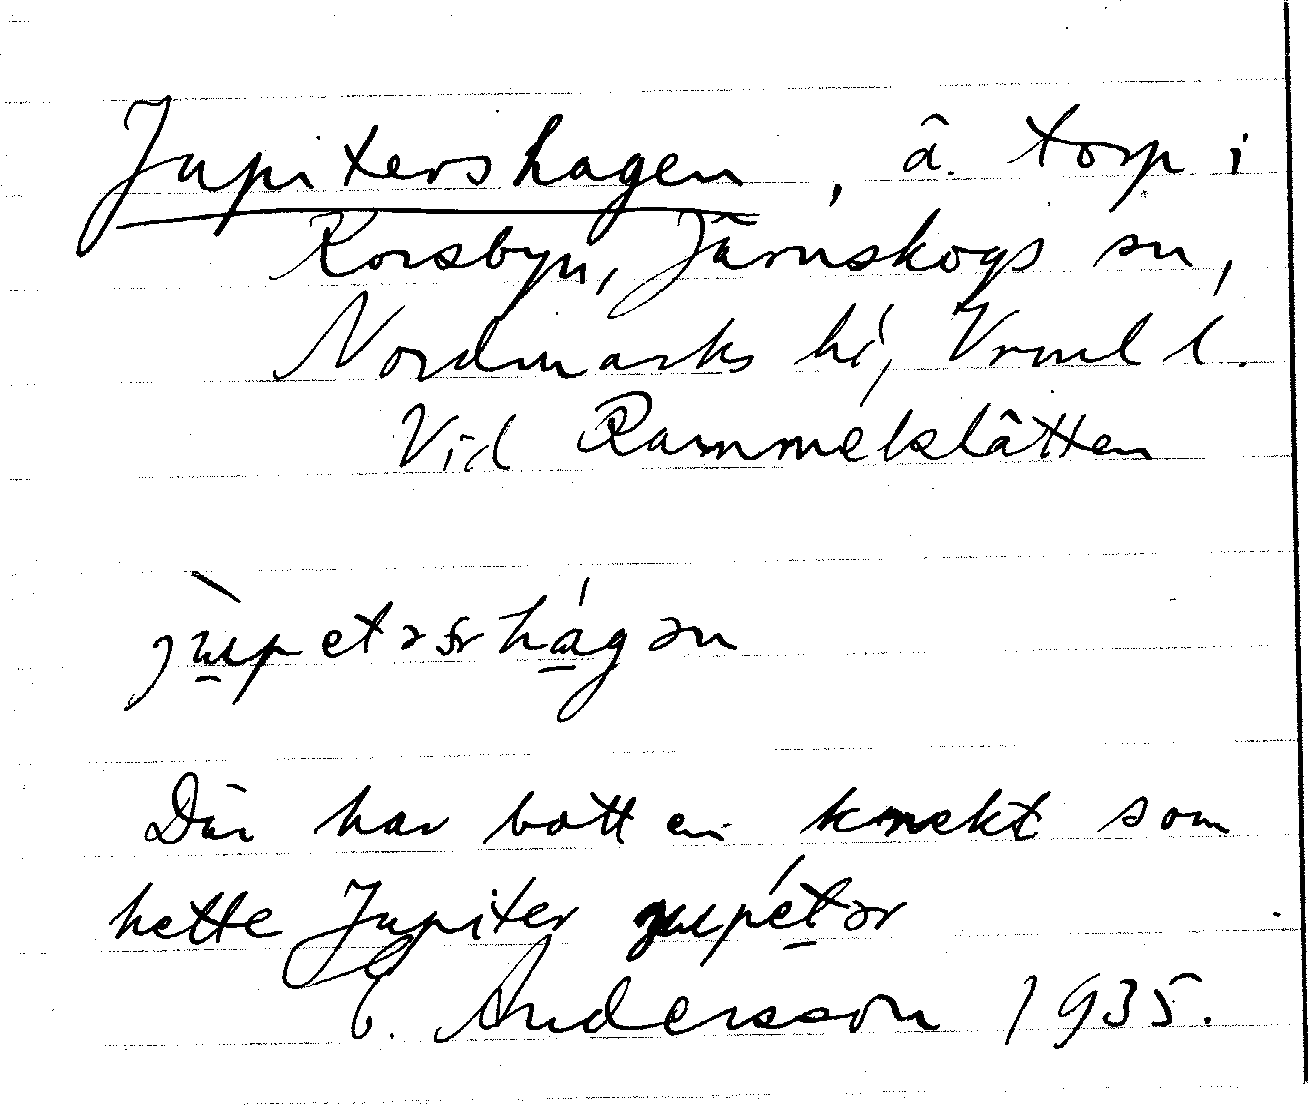 Jupitershagen, â. torp i
Korsbyn, Järnskogs sn,
Nordmarks hd, Vrml l.
Vid Rammekslätten
Där har bott en knekt som
hette Jupiter jupétər
E. Andersson 1935.